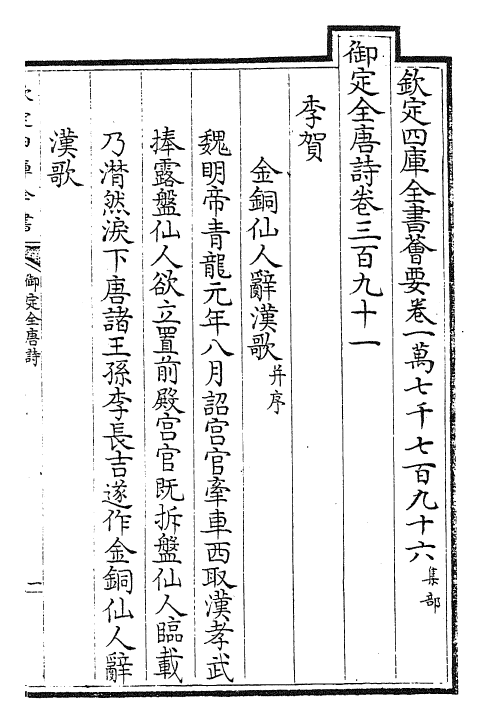 欽定四庫全書薈要卷一萬七千七百九十六 集部
御定全唐詩卷三百九十一
李賀
金銅仙人辭漢歌 并序
魏明帝青龍元年八月詔宫官牽車西取漢孝武
捧露盤仙人欲立置前殿宫官既拆盤仙人臨載
乃潸然淚下唐諸王孫李長吉遂作金銅仙人辭
漢歌
欽定四庫全書
御定全唐詩
一